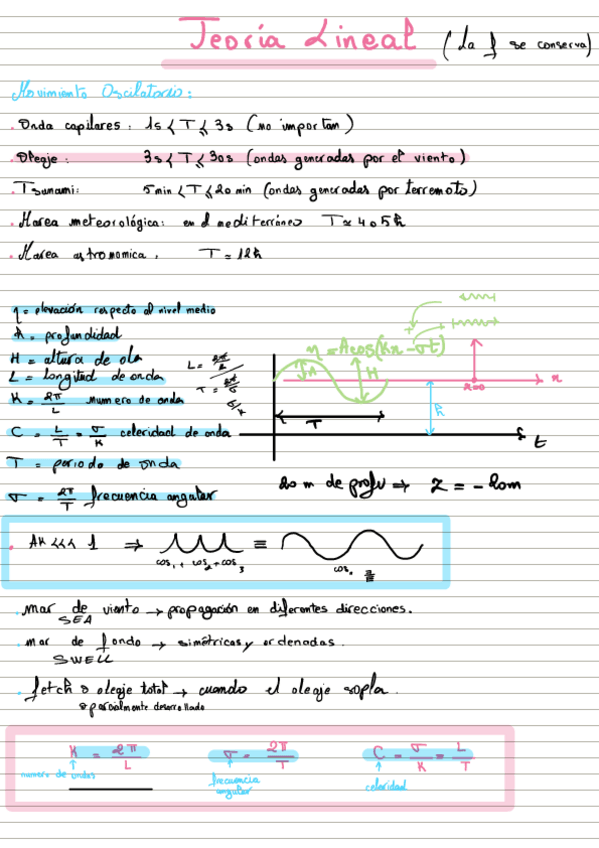 Teoría Lineal (la f se conserva)
Movimiento Oscilatorio:
. Onda capilares: 1s < T ≤ 3s (no importan)
. Oleaje: 3s < T ≤ 30s (ondas generadas por el viento)
. Tsunami: 5min < T ≤ 20min (ondas generadas por terremoto)
. Marea meteorológica: en el mediterráneo T ≈ 4 o 5h
. Marea astronomica. T = 12h
η = elevación respecto al nivel medio
h = profundidad
H = altura de ola
L = longitud de onda
K = 2π/L numero de onda
C = L/T = σ/K celeridad de onda
T = periodo de onda
σ = 2π/T frecuencia angular
η = A cos(Kx - σt)
A
H
x
x=0
h
T
t
20 m de profu ⇒ Z = -20m
. AK <<< 1 ⇒ ≡
cos1 + cos2 + cos3
cos
. mar de viento → propagación en diferentes direcciones.
SEA
. mar de fondo → simétricas y ordenadas.
SWELL
. fetch o oleaje total → cuando el oleaje sopla.
o parcialmente desarrollado
K = 2π/L σ = 2π/T C = σ/K = L/T
numero de ondas frecuencia angular celeridad